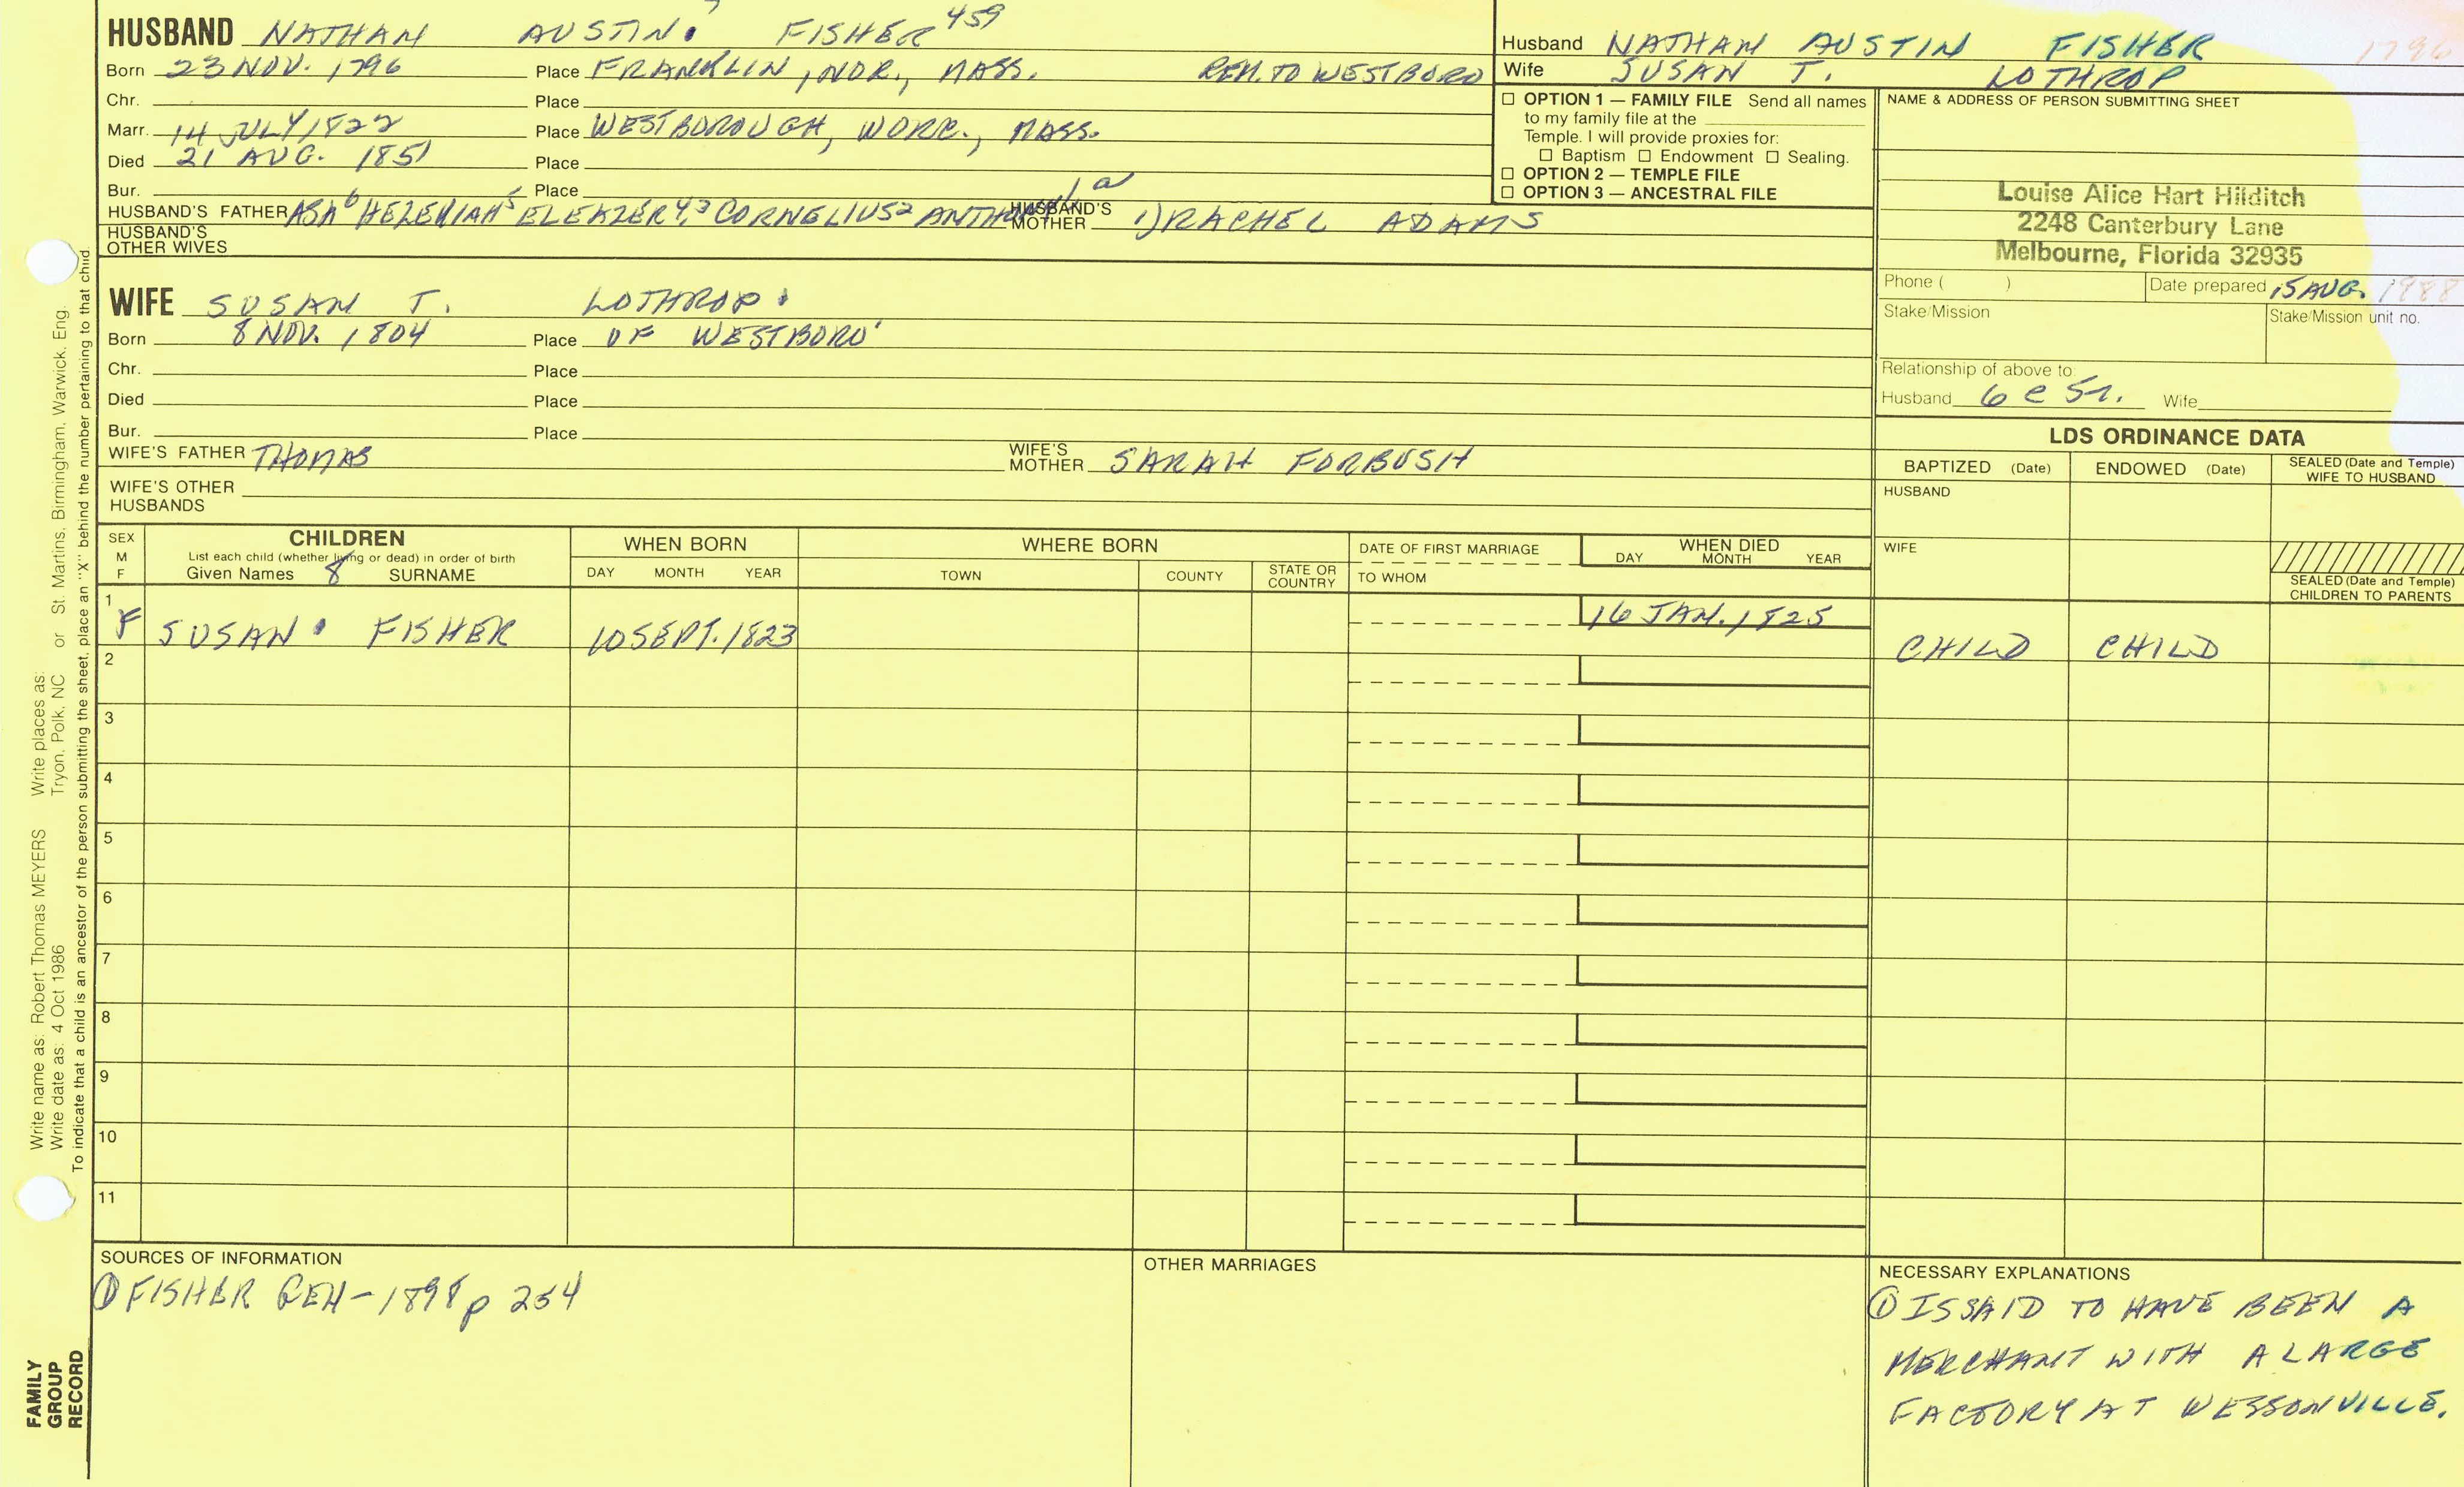 HUSBAND NATHAN AUSTIN 7 FISHER 459
Born 23 NOV. 1796 Place FRANKLIN, NOR., MASS. REM. TO WESTBORO
Chr. Place
Marr. 14 JULY 1822 Place WESTBOROUGH, WORC., MASS.
Died 21 AUG. 1851 Place
Bur. Place
HUSBAND'S FATHER ASA 6 HEZEKIAH 5 ELEAZER 4,3 CORNELIUS 2 ANTHONY 1 a HUSBAND'S MOTHER 1) RACHEL ADAMS
HUSBAND'S OTHER WIVES
WIFE SUSAN T. LOTHROP
Born 8 NOV. 1804 Place OF WESTBORO'
Chr. Place
Died Place
Bur. Place
WIFE'S FATHER THOMAS WIFE'S MOTHER SARAH FORBUSH
WIFE'S OTHER HUSBANDS
Husband NATHAN AUSTIN FISHER 1796
Wife SUSAN T. LOTHROP
☐ OPTION 1 — FAMILY FILE Send all names
to my family file at the
Temple. I will provide proxies for:
☐ Baptism ☐ Endowment ☐ Sealing.
☐ OPTION 2 — TEMPLE FILE
☐ OPTION 3 — ANCESTRAL FILE
NAME & ADDRESS OF PERSON SUBMITTING SHEET
Louise Alice Hart Hilditch
2248 Canterbury Lane
Melbourne, Florida 32935
Phone ( ) Date prepared 15 AUG. 1988
Stake/Mission Stake/Mission unit no.
Relationship of above to:
Husband 6 C 5 r. Wife
LDS ORDINANCE DATA
BAPTIZED (Date) ENDOWED (Date) SEALED (Date and Temple) WIFE TO HUSBAND
HUSBAND
WIFE
SEALED (Date and Temple) CHILDREN TO PARENTS
SEX M F
CHILDREN
List each child (whether living or dead) in order of birth
Given Names 8 SURNAME
WHEN BORN
DAY MONTH YEAR
WHERE BORN
TOWN COUNTY STATE OR COUNTRY
DATE OF FIRST MARRIAGE
TO WHOM
WHEN DIED
DAY MONTH YEAR
1 F SUSAN FISHER 10 SEPT. 1823 16 JAN. 1825 CHILD CHILD
2
3
4
5
6
7
8
9
10
11
SOURCES OF INFORMATION
① FISHER GEN-1898 p 254
OTHER MARRIAGES
NECESSARY EXPLANATIONS
① IS SAID TO HAVE BEEN A
MERCHANT WITH A LARGE
FACTORY AT WESSONVILLE.
Write name as: Robert Thomas MEYERS Write places as:
Write date as: 4 Oct 1986 Tryon, Polk, NC or St. Martins, Birmingham, Warwick, Eng.
To indicate that a child is an ancestor of the person submitting the sheet, place an "X" behind the number pertaining to that child.
FAMILY
GROUP
RECORD